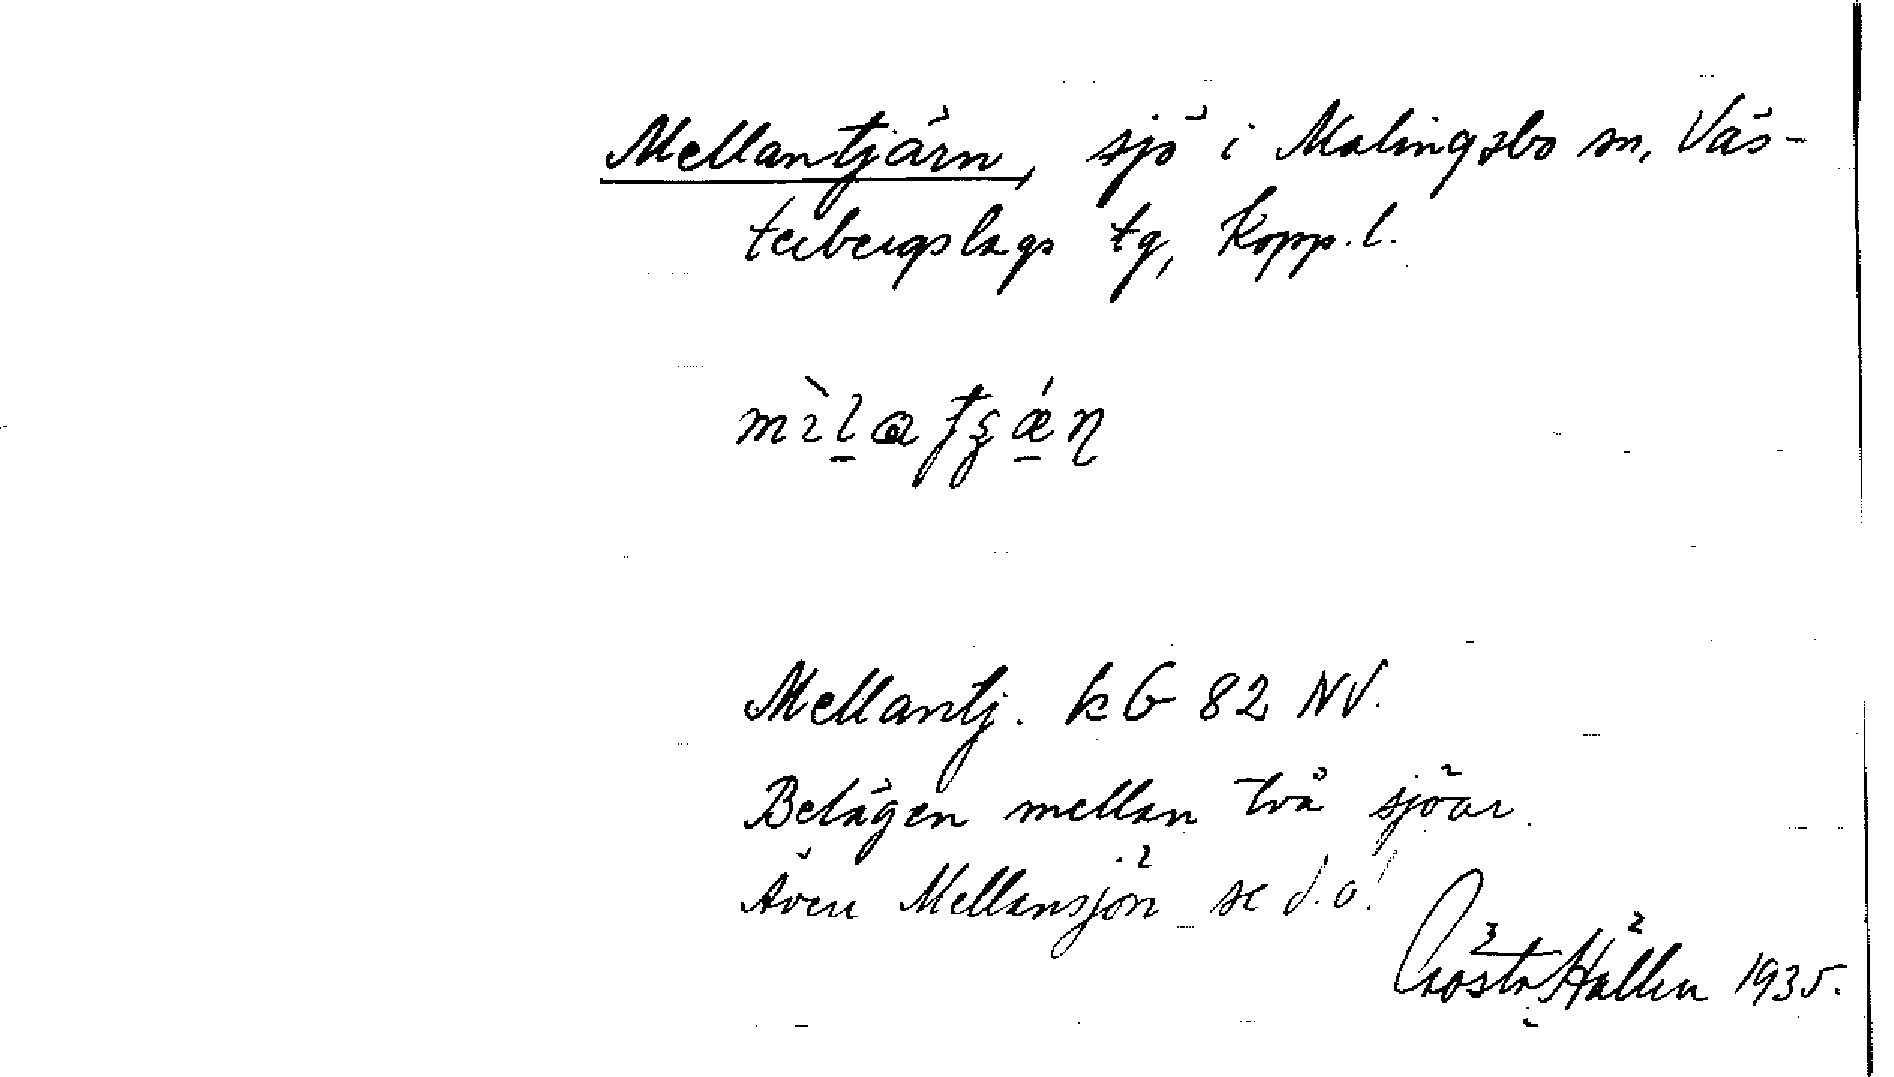 Mellantjärn, sjö i Malingsbo sn, Väs-
terbergslags tg, Kopp. l.
Mellantj. kG 82 NV.
Belägen mellan två sjöar.
Även Mellansjön se d.o!
Gösta Hallén 1935.